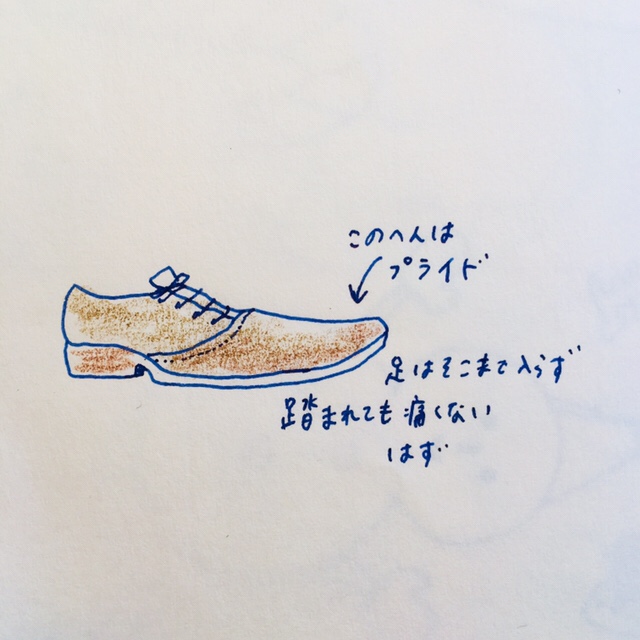 このへんは
プライド
足はそこまで入らず
踏まれても痛くない
はず